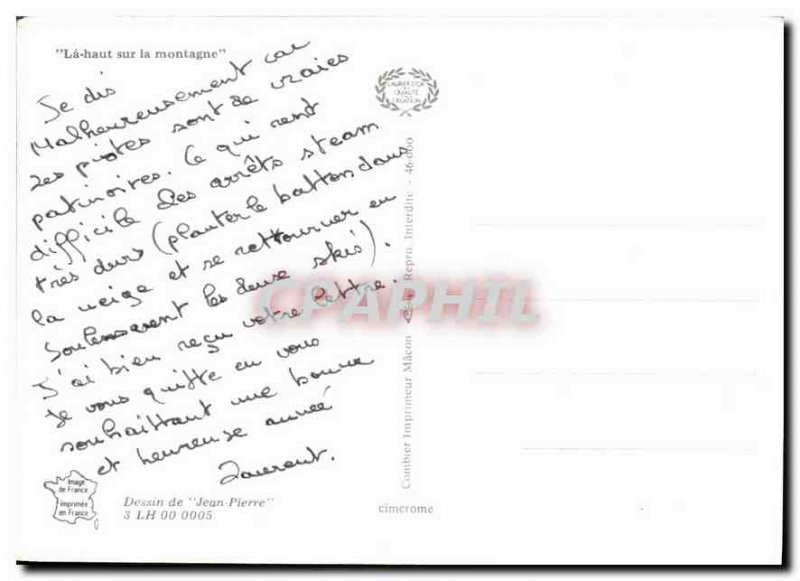 "Là-haut sur la montagne"
Je dis
Malheureusement car
les pistes sont de vraies
patinoires. Ce qui rent
difficile des arrêts steam
très durs (planter le batton dans
la neige et se rettourner en
soulevent les deuse skis).
J'ai bien reçu votre lettre.
Je vous quitte en vous
souhaittant une bonne
et heureuse année
Laurent.
Image
de France
imprimée
en France
Dessin de "Jean-Pierre"
3 LH 00 0005
QUALITÉ
CRÉATION
Combier Imprimeur Mâcon
Repro. Interdite - 46-000
cimcrome
CPAPHIL